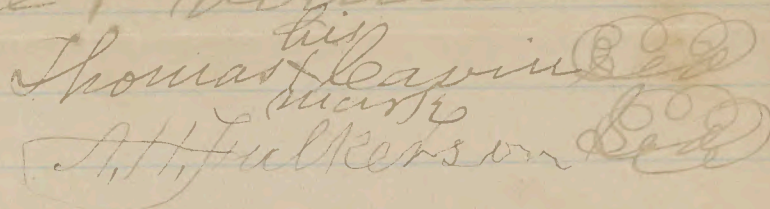 his
Thomas X Cavin Seal
mark
A.H. Fulkerson Seal